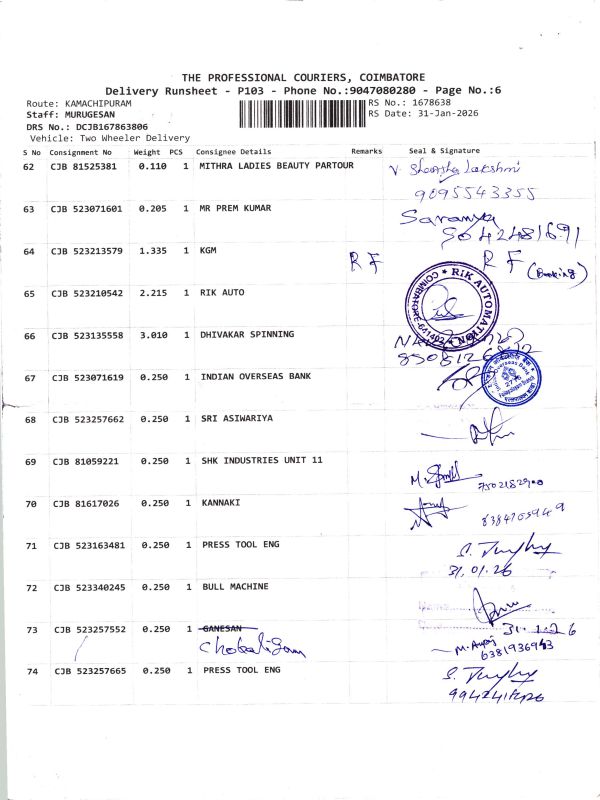 THE PROFESSIONAL COURIERS, COIMBATORE
Delivery Runsheet - P103 - Phone No.:9047080280 - Page No.:6
Route: KAMACHIPURAM
RS No.: 1678638
Staff: MURUGESAN
RS Date: 31-Jan-2026
DRS No.: DCJB167863806
Vehicle: Two Wheeler Delivery
S No Consignment No Weight PCS Consignee Details Remarks Seal & Signature
62 CJB 81525381 0.110 1 MITHRA LADIES BEAUTY PARTOUR
9095543355
63 CJB 523071601 0.205 1 MR PREM KUMAR Saranya
64 CJB 523213579 1.335 1 KGM RF RF (Banking)
65 CJB 523210542 2.215 1 RIK AUTO
RIK AUTOMATION
COIMBATORE-641402
66 CJB 523135558 3.010 1 DHIVAKAR SPINNING
67 CJB 523071619 0.250 1 INDIAN OVERSEAS BANK
68 CJB 523257662 0.250 1 SRI ASIWARIYA
69 CJB 81059221 0.250 1 SHK INDUSTRIES UNIT 11
70 CJB 81617026 0.250 1 KANNAKI
71 CJB 523163481 0.250 1 PRESS TOOL ENG
31.01.26
72 CJB 523340245 0.250 1 BULL MACHINE
31.1.26
73 CJB 523257552 0.250 1 GANESAN
6381936943
74 CJB 523257665 0.250 1 PRESS TOOL ENG